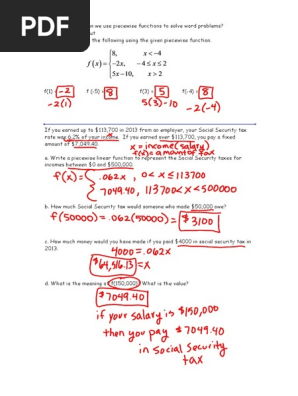 PDF
n we use piecewise functions to solve word problems?
ut
the following using the given piecewise function.
8, x < -4
f(x) = -2x, -4 ≤ x ≤ 2
5x - 10, x > 2
f(1) = -2 f(-5) = 8 f(3) = 5 f(-4) = 8
-2(1) 5(3)-10 -2(-4)
If you earned up to $113,700 in 2013 from an employer, your Social Security tax
rate was 6.2% of your income. If you earned over $113,700, you pay a fixed
amount of $7,049.40.
x = income (salary)
f(x) = amount of tax
a. Write a piecewise linear function to represent the Social Security taxes for
incomes between $0 and $500,000.
f(x) = .062x , 0 < x ≤ 113700
7049.40, 113700 < x < 500000
b. How much Social Security tax would someone who made $50,000 owe?
f(50000) = .062(50000) = $3100
c. How much money would you have made if you paid $4000 in social security tax in
2013.
4000 = .062x
$64,516.13 = x
d. What is the meaning of f(150,000)? What is the value?
$7049.40
if your salary is $150,000
then you pay $7049.40
in social security
tax